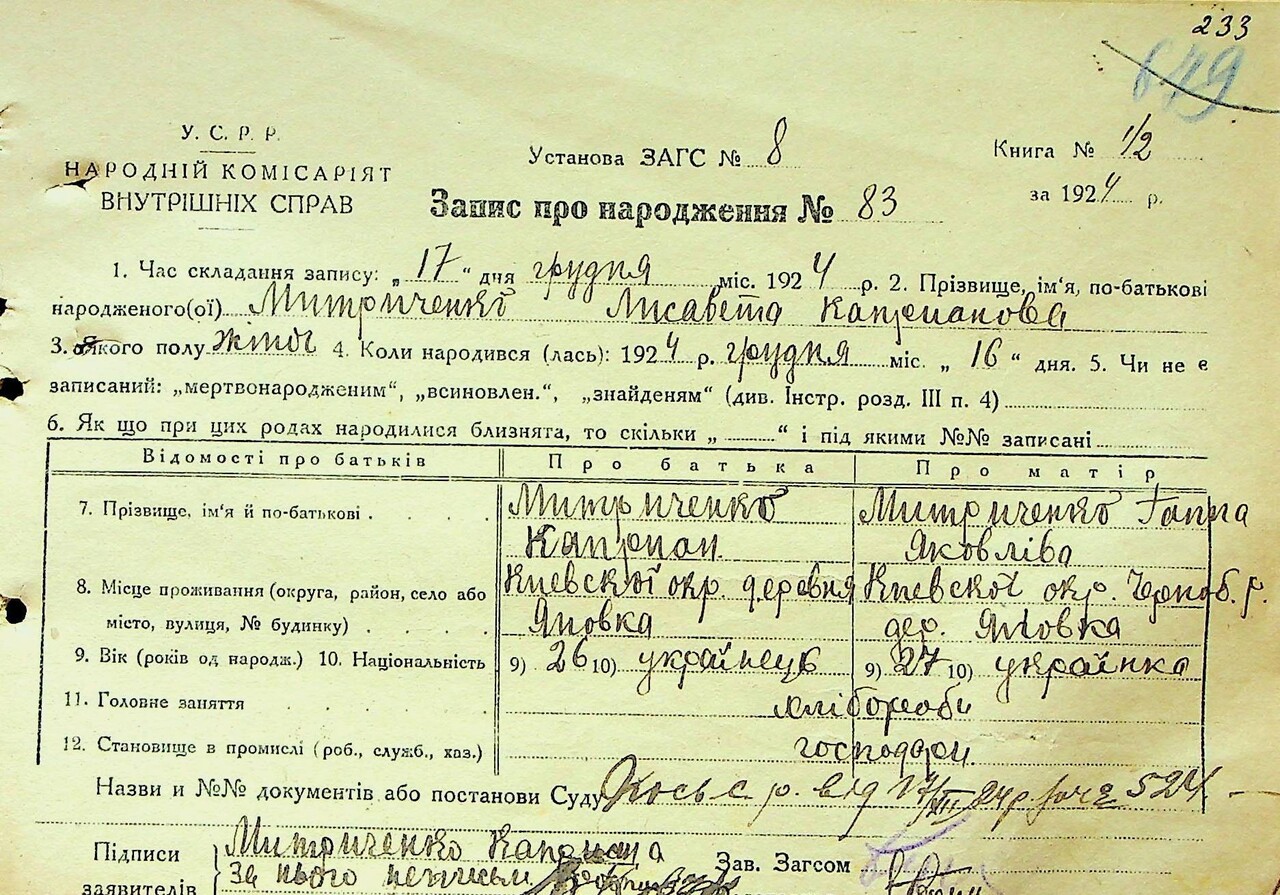 233
679
У. С. Р. Р.
НАРОДНІЙ КОМІСАРІЯТ
ВНУТРІШНІХ СПРАВ
Установа ЗАГС № 8
Книга № 1/2
за 1924 р.
Запис про народження № 83
1. Час складання запису: „17“ дня грудня міс. 1924 р. 2. Прізвище, ім'я, по-батькові
народженого(ої) Митриченко Лисавета Капріанова
3. Якого полу жіноч 4. Коли народився (лась): 1924 р. грудня міс. „16“ дня. 5. Чи не є
записаний: „мертвонародженим“, „всиновлен.“, „знайденям“ (див. Інстр. розд. III п. 4)
6. Як що при цих родах народилися близнята, то скільки „ “ і під якими №№ записані
Відомості про батьків Про батька Про матір
7. Прізвище, ім'я й по-батькові Митриченко Митриченко Ганна
Капріан Яковліва
8. Місце проживання (округа, район, село або Киевскої окр. деревня Киевскої окр. Черноб. р.
місто, вулиця, № будинку) Яновка дер. Яновка
9. Вік (років од народж.) 10. Національність 9) 26 10) українець 9) 27 10) українка
11. Головне заняття хліборооби
12. Становище в промислі (роб., служб., хаз.) господари
Назви и №№ документів або постанови Суду с. р. від 17/XII 24 р. 524
Підписи Митриченко Капріана Зав. Загсом
заявителів за нього